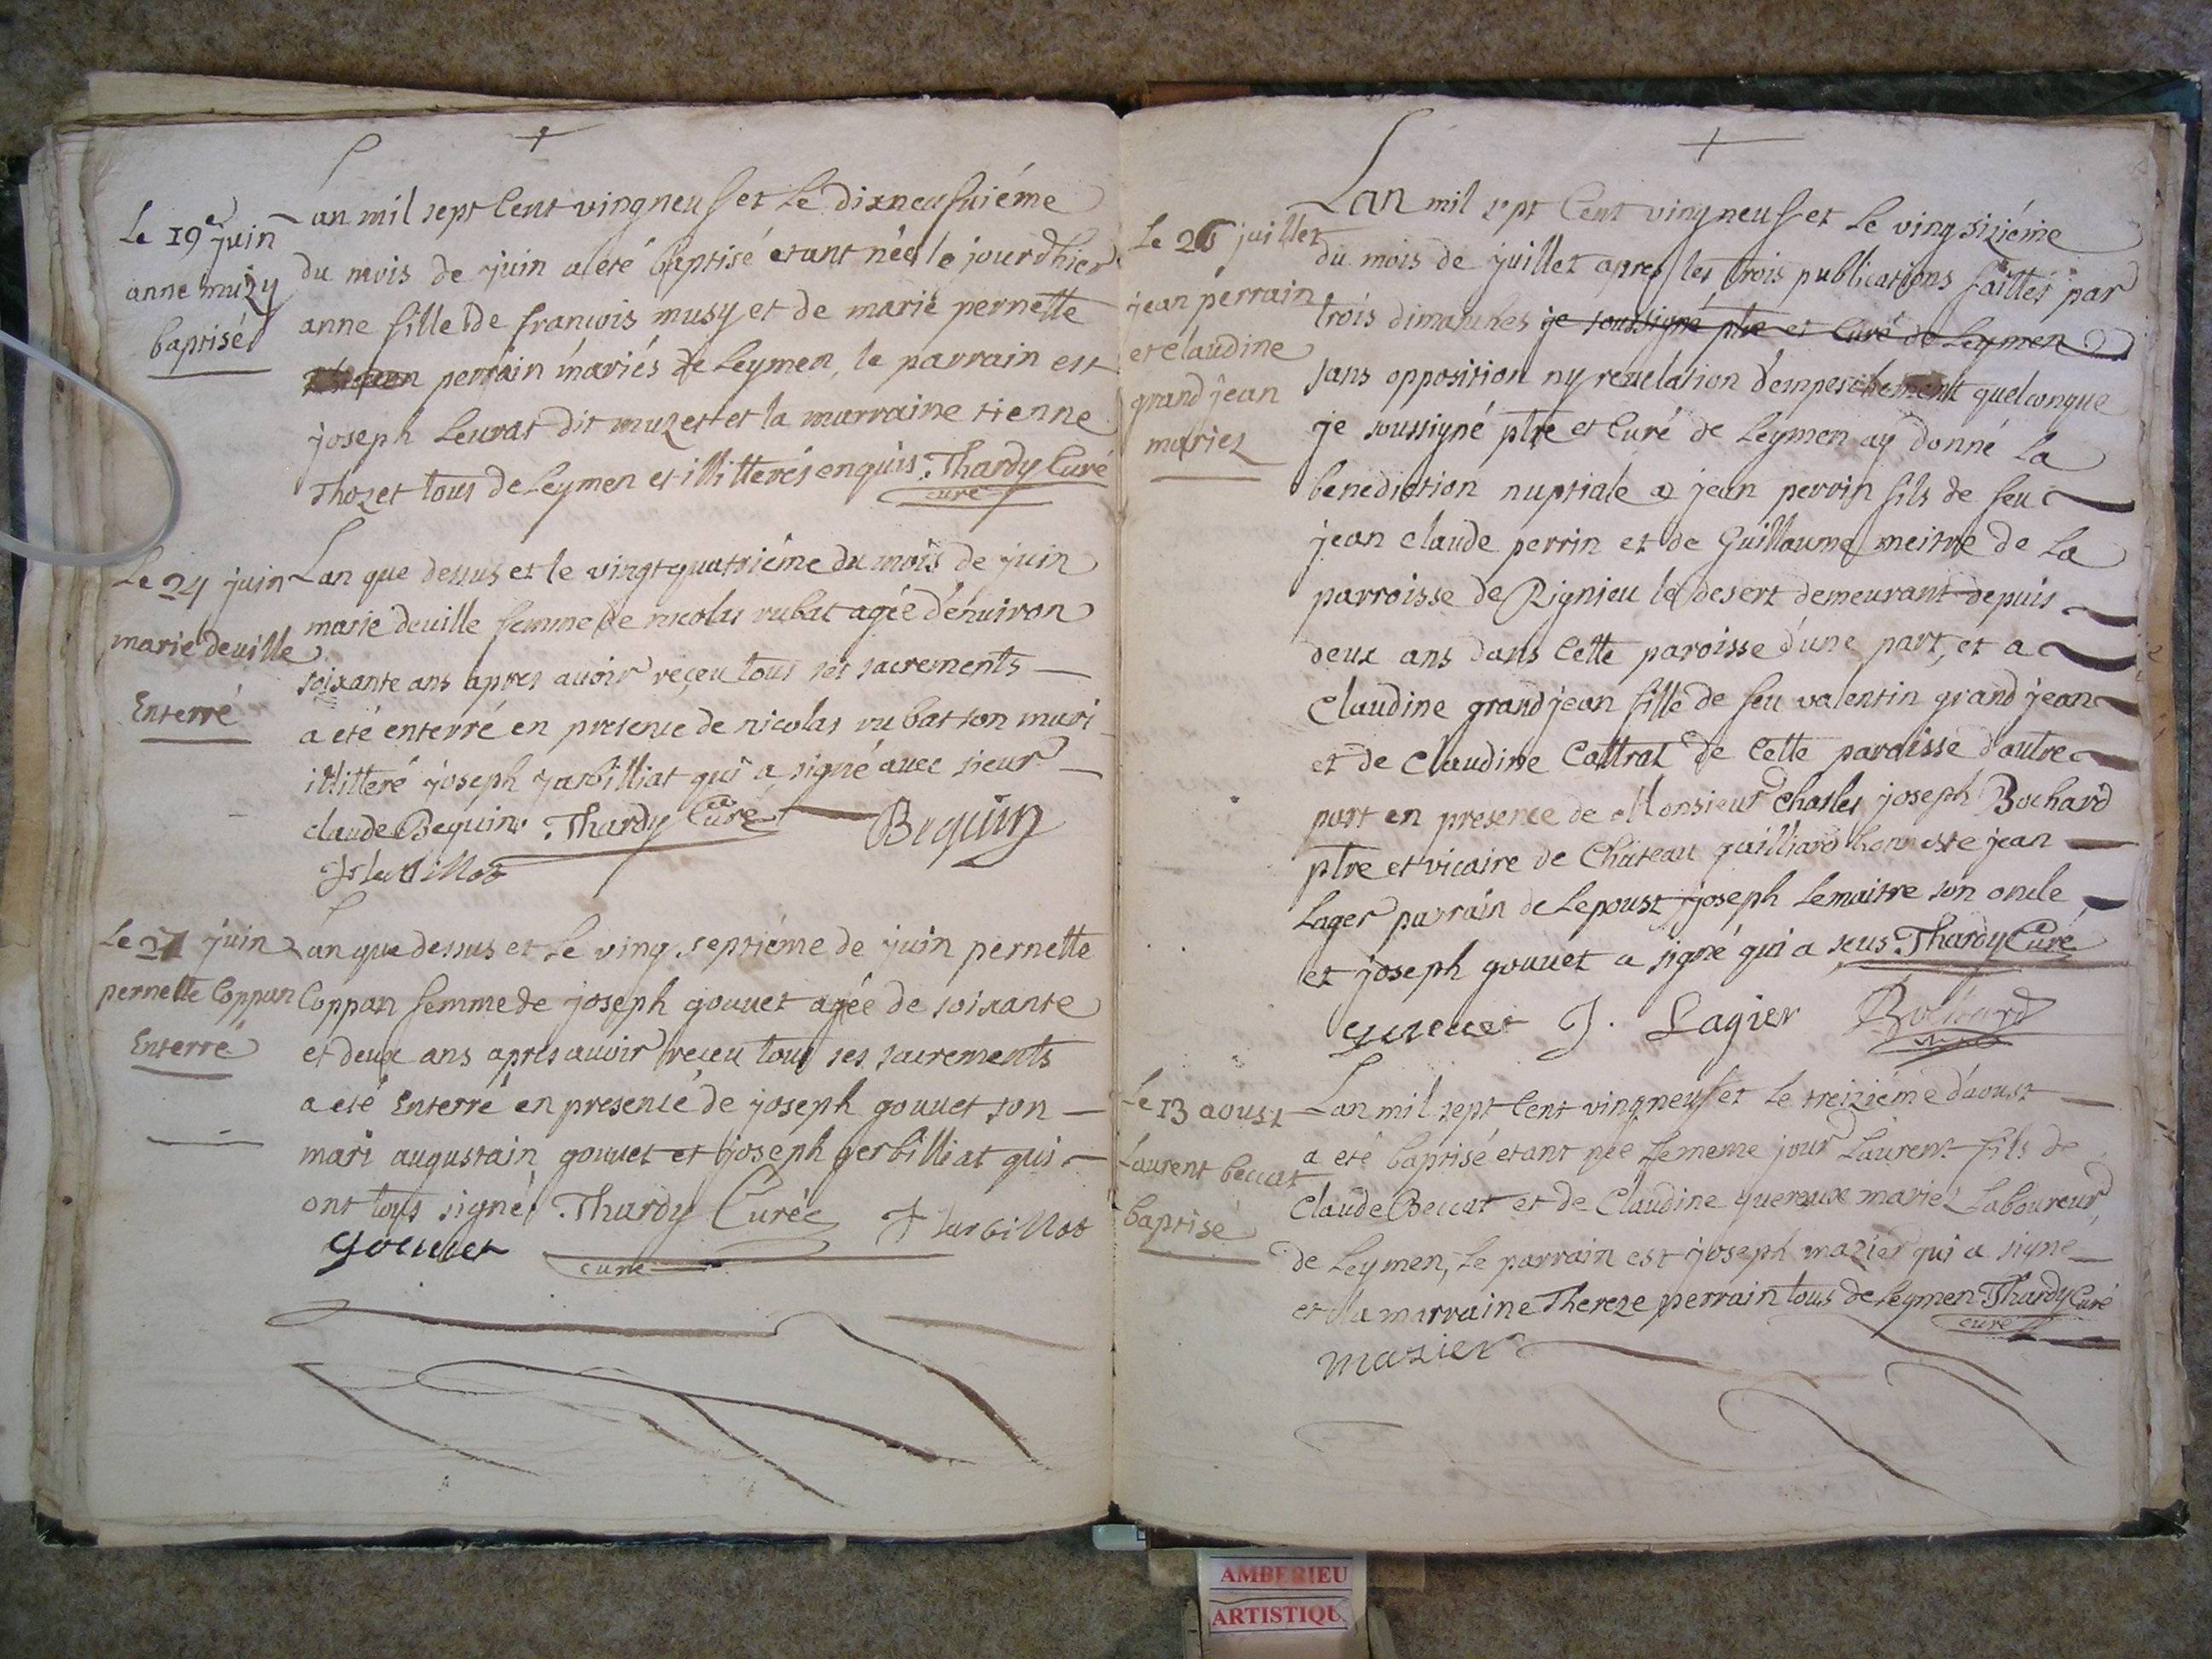 Le 19e juin
anne muzy
baptisé
Lan mil sept Cent vingneuf et Le dixneufuiéme
du mois de juin a eté baptisé etant née le jourdhier
anne fille de francois musy et de marie pernette
perrain mariés de Leymen, le parrain est
joseph Leurat dit muzet et la marraine tienne
Thozet tous de Leymen et illitterés enquis Thardy Curé
curé
Le 24 juin
marie deuille
Enterré
Lan que dessus et le vingtquatriéme du mois de juin
marie deuille femme de nicolas rubat agée d'enuiron
soixante ans apres auoir reçeu tous ses sacrements
a eté enterré en presence de nicolas rubat son mari
illitteré joseph jarbilliat qui a signé auec sieur
claude Bequin Thardy Curé Bequin
Le 27 juin
pernette Coppan
Enterré
Lan que dessus et Le ving septiéme de juin pernette
Coppan femme de joseph gouuet agée de soixante
et deux ans apres auoir reçeu tous ses sacrements
a eté Enterré en presence de joseph gouuet son
mari augustain gouuet et joseph gerbilliat qui
ont tous signé Thardy Curé
gouuet
cure
Le 26 juillet
jean perrain
et claudine
grand jean
mariez
Lan mil sept Cent vingneuf et Le ving siziéme
du mois de juillet apres les trois publications faittes par
trois dimanches je soussigné ptre et Curé de Leymen
sans opposition ny reuelation d'empeschement quelconque
je soussigné ptre et Curé de Leymen ay donné La
benediction nuptiale a jean perrin fils de feu
jean claude perrin et de Guillaume meitre de La
parroisse de Rignieu le desert demeurant depuis
deux ans dans Cette paroisse d'une part, et a
Claudine grand jean fille de feu valentin grand jean
et de Claudine Cottrat de Cette paroisse d'autre
part en presence de Monsieur Charles joseph Bochard
ptre et vicaire de Château gailliard honneste jean
Lager parrain de Lepoust joseph Lemaitre son oncle
et joseph gouuet a signé qui a sceus Thardy Curé
gouuet J. Lagier Bochard
Le 13 aoust
Laurent beccat
baptisé
Lan mil sept Cent vingneuf et Le treiziéme d'aoust
a eté baptisé etant née Le meme jour Laurent fils de
Claude Beccat et de Claudine quereux mariez Laboureur
de Leymen, Le parrain est joseph mazier qui a signé
et la marraine Thereze perrain tous de Leymen Thardy Curé
curé
mazier
AMBERIEU
ARTISTIQU